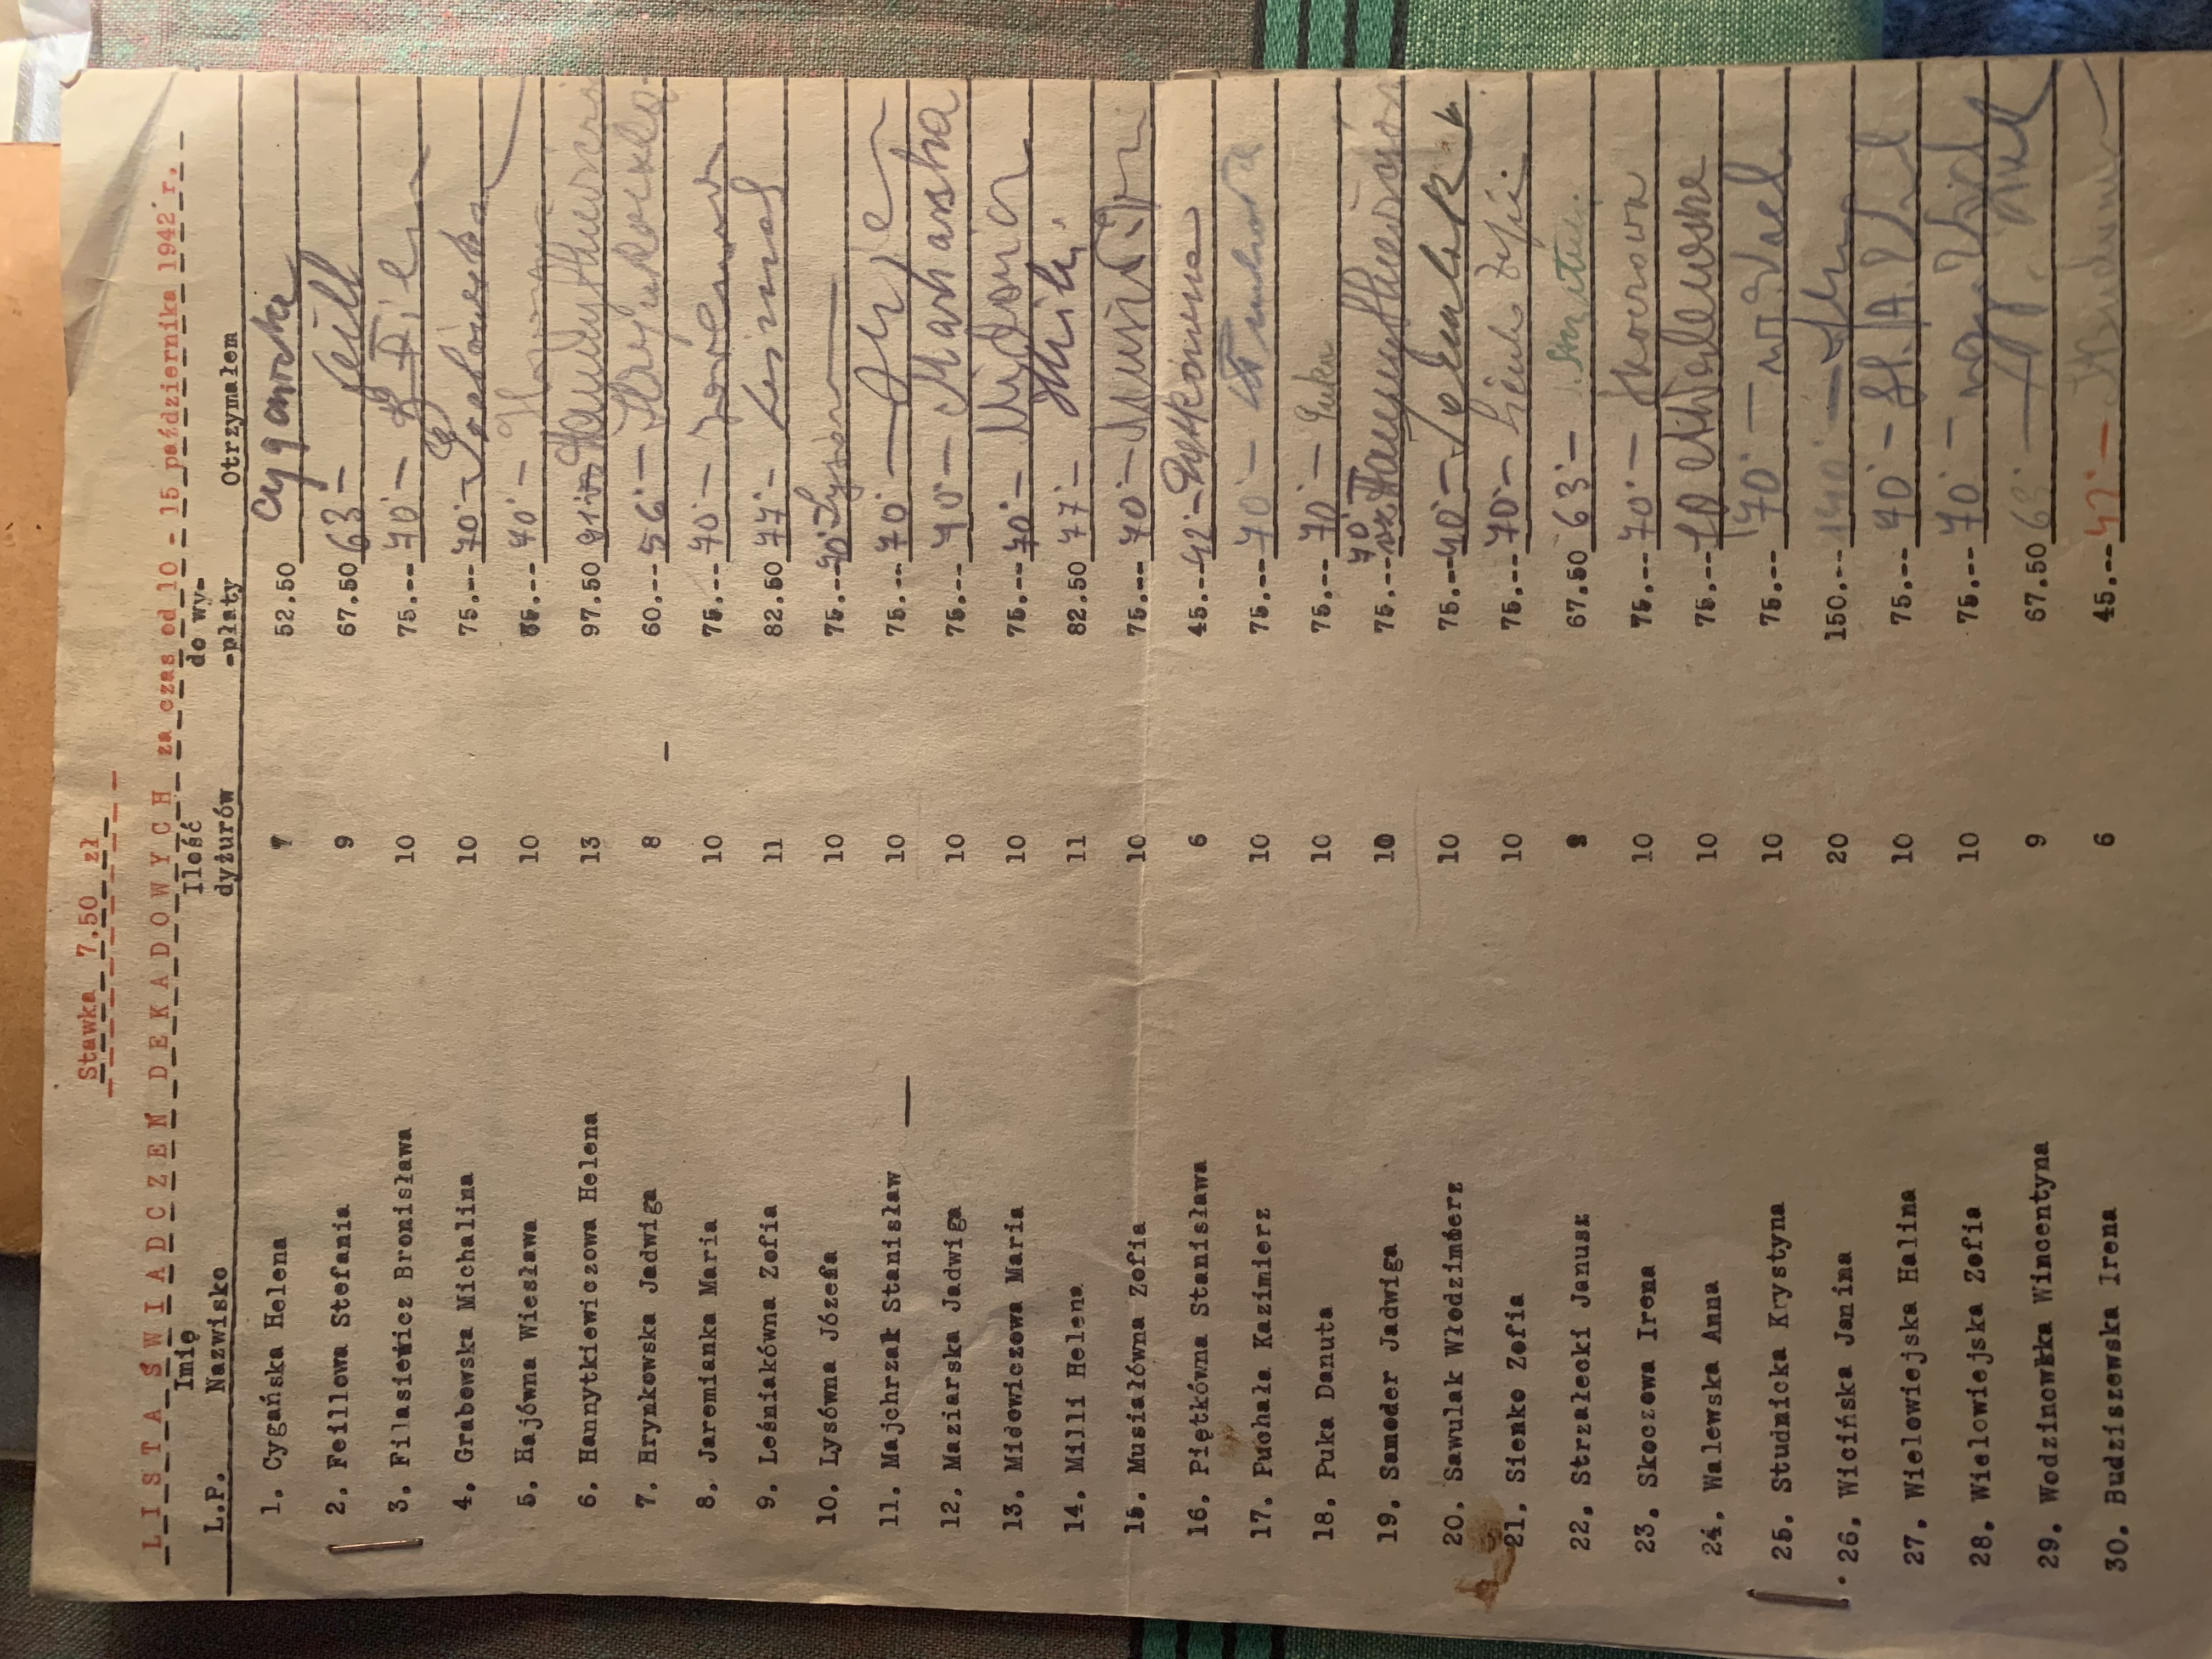 Stawka 7.50 zł
L I S T A Ś W I A D C Z E Ń D E K A D O W Y C H za czas od 10 - 15 października 1942 r.
L.P. Imię Nazwisko Ilość dyżurów do wy- -płaty Otrzymałem
1. Cygańska Helena 7 52.50 Cygańska
2. Feillowa Stefania 9 67.50 63 - Feill
3. Filasiewicz Bronisława 10 75.-- 70 -
4. Grabowska Michalina 10 75.-- 70 -
5. Hajówna Wiesława 10 75.-- 70 -
6. Hannytkiewiczowa Helena 13 97.50 91 Hannytkiewicz
7. Hrynkowska Jadwiga 8 60.-- 56 - Hrynkowska
8. Jaremianka Maria 10 75.-- 70 -
9. Leśniakówna Zofia 11 82.50 77 -
10. Lysówna Józefa 10 75.-- 70
11. Majchrzak Stanisław 10 75.-- 70 -
12. Maziarska Jadwiga 10 75.-- 70 -
13. Midowiczowa Maria 10 75.-- 70 -
14. Milli Helena 11 82.50 77 - Milli
15. Musiałówna Zofia 10 75.-- 70 -
16. Piętkówna Stanisława 6 45.-- 42 -
17. Puchała Kazimierz 10 75.-- 70 -
18. Puka Danuta 10 75.-- 70 - Puka
19. Samoder Jadwiga 10 75.-- 70 Hannytkiewicz
20. Sawulak Włodzimierz 10 75.-- 70 -
21. Sienko Zofia 10 75.-- 70 - Sienko Zofia
22. Strzałecki Janusz 67.50 63 -
23. Skoczowa Irena 10 75.-- 70 - Skoczowa
24. Walewska Anna 10 75.-- 70 AWalewska
25. Studnicka Krystyna 10 75.-- 70 -
26. Wicińska Janina 20 150.-- 140 -
27. Wielowiejska Halina 10 75.-- 70 -
28. Wielowiejska Zofia 10 75.-- 70 -
29. Wodzinowska Wincentyna 9 67.50 63 -
30. Budziszewska Irena 6 45.-- 42 -